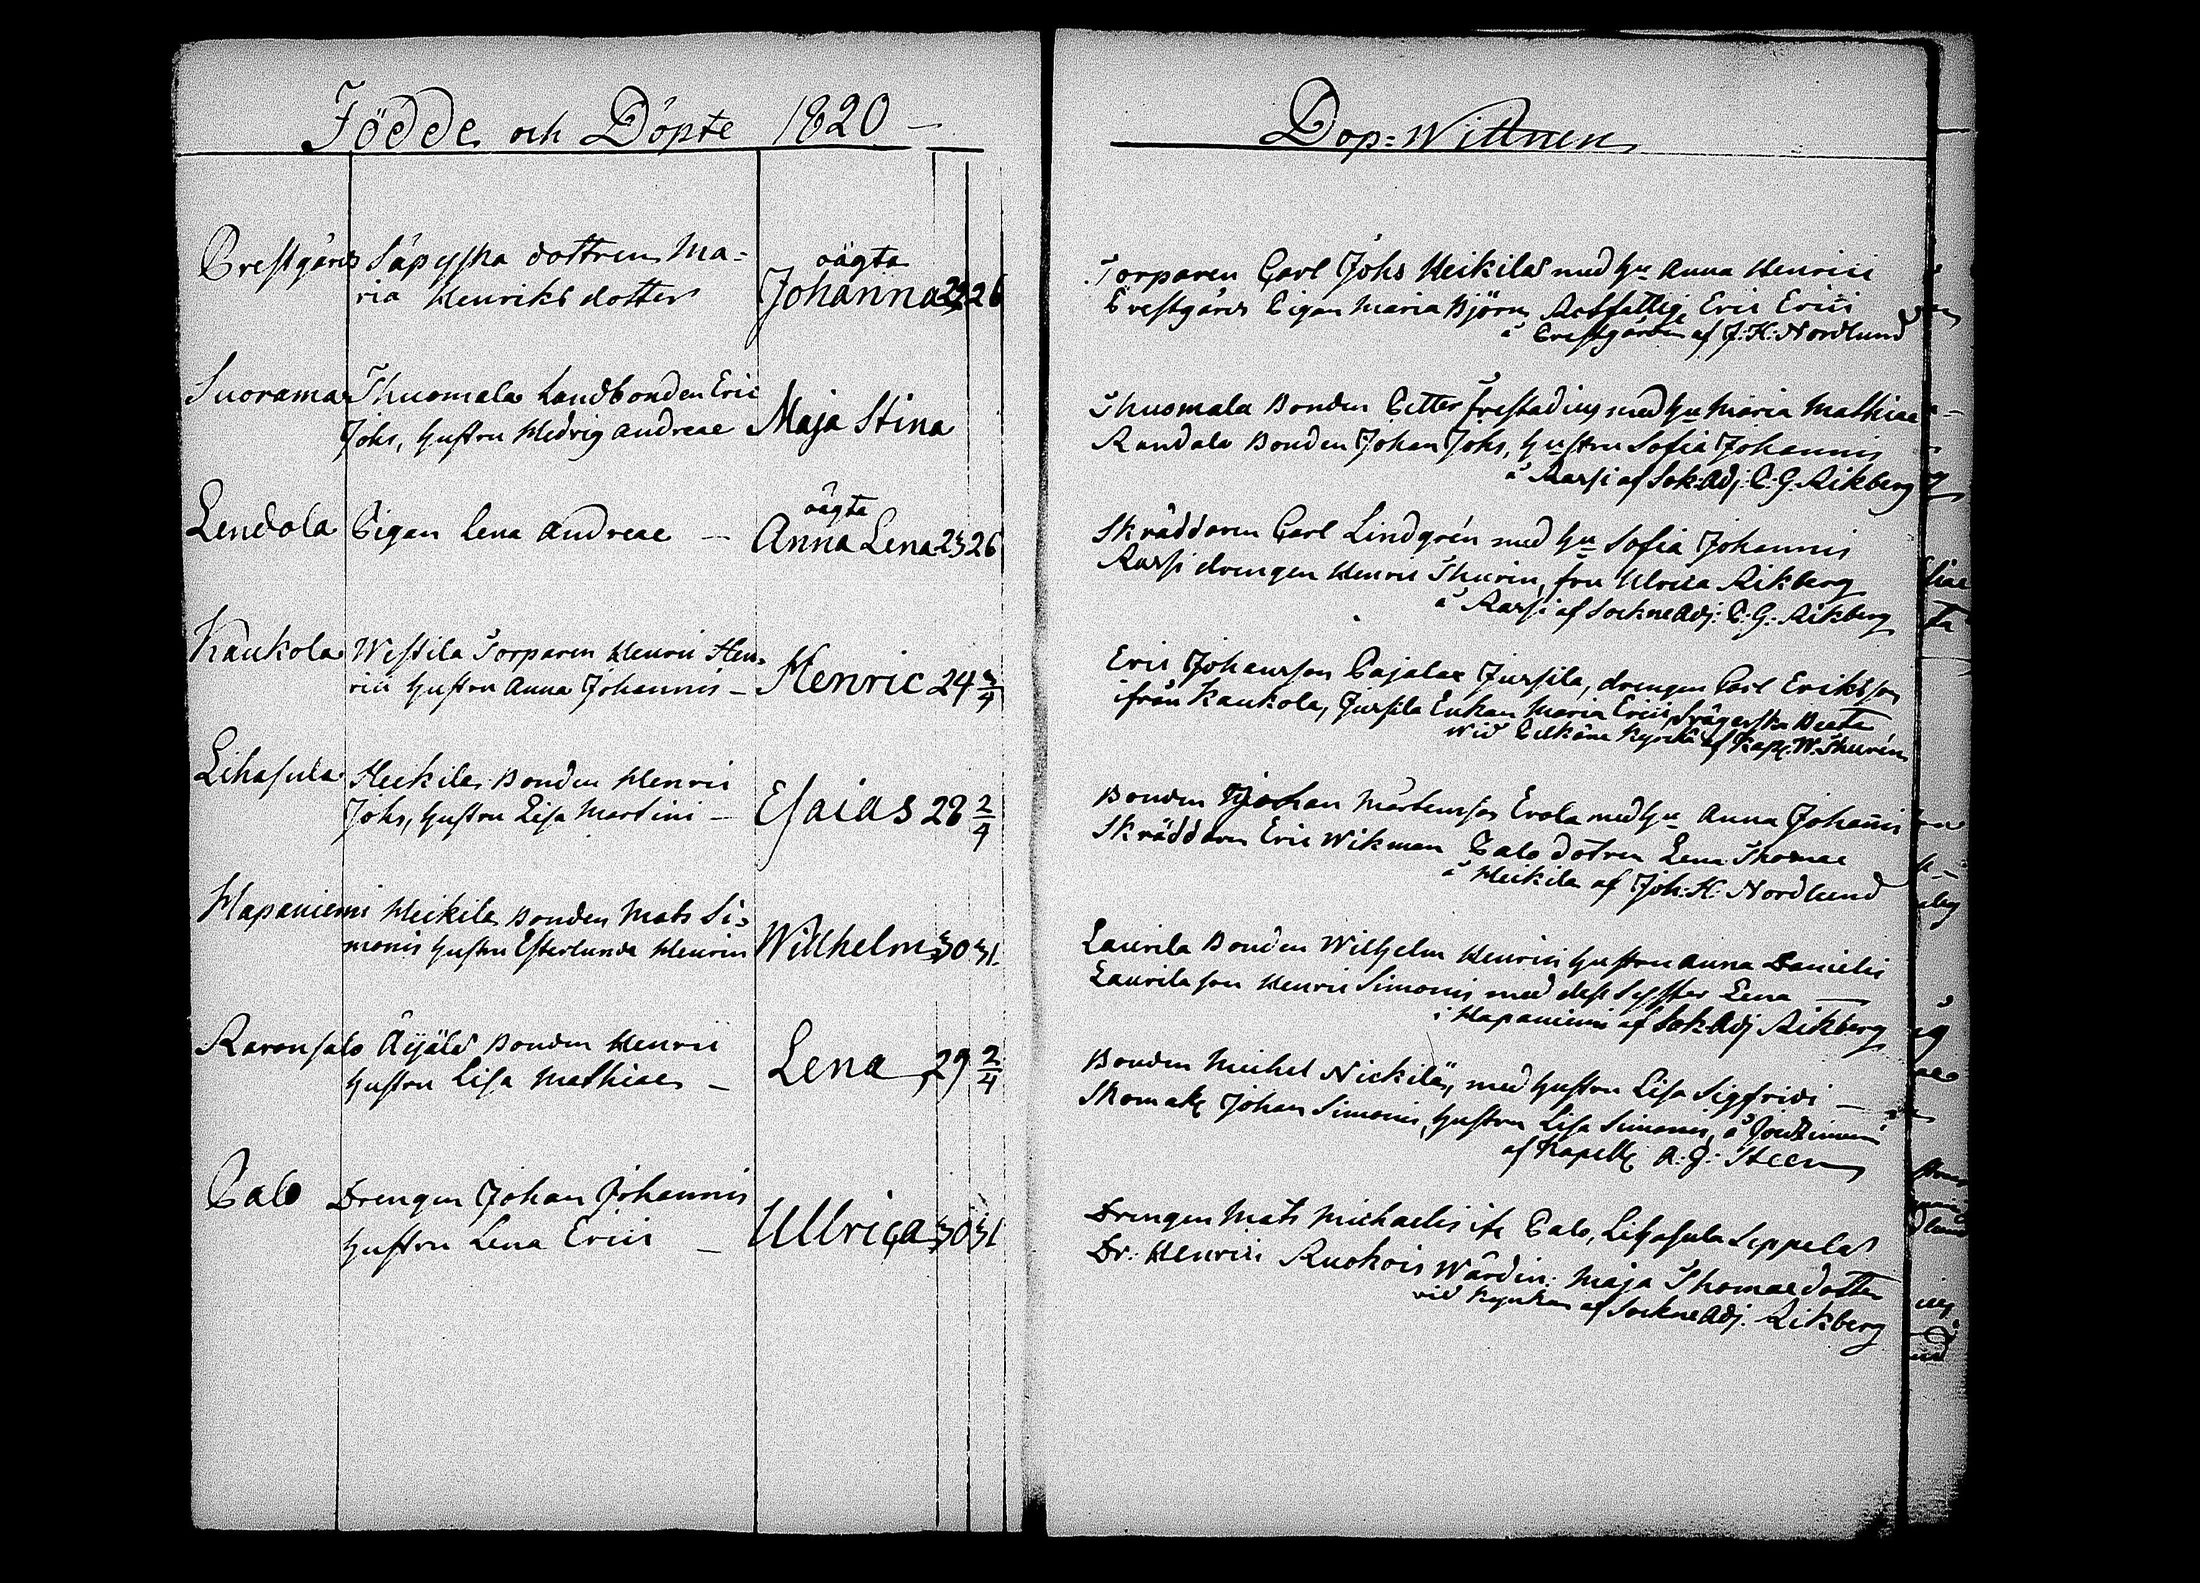 Födde och Döpte 1820 —
Prestgårds Säpyska dottren Ma=
ria Henriks dotter
oägta
Johanna 23 26
Suorama Thuomala Landbonden Eric
Johs, hustru Hedvig Andreae Maja Stina
Lendola Pigan Lena Andreae — oägta
Anna Lena 23 26
Kaukola Westila Torparen Henric Hen=
rici hustru Anna Johannis — Henric 24 3/4
Lihasula Heikile Bonden Henric
Johs, hustru Lisa Martini — Esaias 28 2/4
Hapaniemi Heikile Bonden Mats Si=
monis hustru Esterlunda Henrici Willhelm 30 31
Raronsalo Äijälä Bonden Henric
hustru Lisa Mathiae — Lena 29 2/4
Palo Drengen Johan Johannis
hustru Lena Erici — Ullrica 30 31
Dop=Wittnen
Torparen Carl Johs Heikilä med hu Anna Henrici
Prestgårds Pigan Maria Björn Eric Erici
å Prestgården af J. H. Nordlund
Thuomala Bonden Petter Frestadius med hu Maria Mathiae
Randala Bonden Johan Johs, hustru Sofia Johannis
å Rarsi af Sok: Adj: C. G. Aikberg
Skräddaren Carl Lindgrén med hu Sofia Johannis
Rarsi drengen Henric Thurin, fru Ulrica Aikberg
å Rarsi af SockneAdj: C. G. Aikberg
Eric Johansson Pajalae Jussila, drengen Carl Eriksson
ifrån Kaukola, Jussila Enkan Maria Erici, Svägerska Beata
wid Pelkäne Kyrcka af Kapl. W. Thurén
Bonden Johan Mårtensson Erola med hu Anna Johannis
Skräddaren Eric Wikman Palo dotren Lena Thomae
å Heikile af Joh: H. Nordlund
Laurila Bonden Wilhelm Henrici hustru Anna Danielis
Laurila son Henric Simonis med dess Syster Lena —
i Hapaniemi af Sok: Adj Aikberg
Bonden Michel Nickilä, med hustru Lisa Sigfridi —
Skomak: Johan Simonis, hustru Lisa Simonis, å
af Kapell: A. J. Steen
Drengen Mats Michaelis ifr Palo, Lihasula Seppelä
Dr: Henrici Ruokois Wärdin: Maja Thomaedotter
vid Kyrkan af SockneAdj. Aikberg